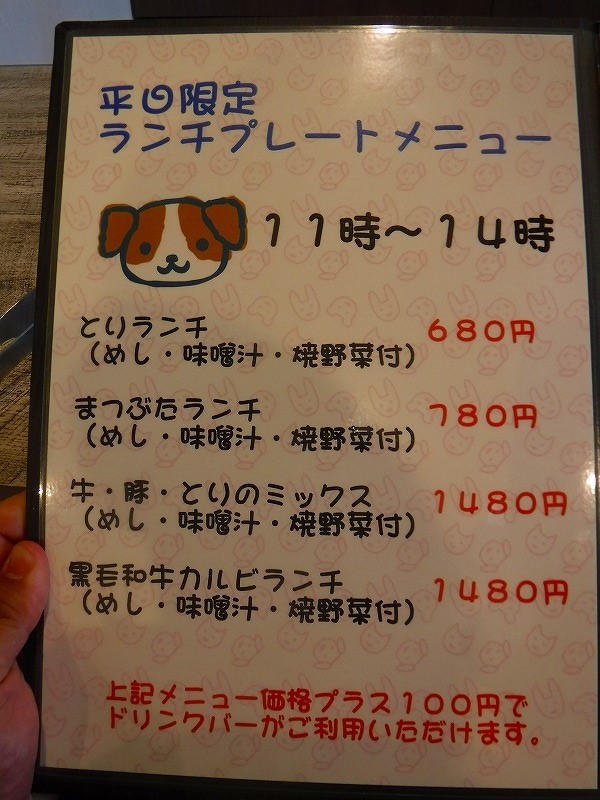 平日限定
ランチプレートメニュー
11時～14時
とりランチ 680円
（めし・味噌汁・焼野菜付）
まつぶたランチ 780円
（めし・味噌汁・焼野菜付）
牛・豚・とりのミックス 1480円
（めし・味噌汁・焼野菜付）
黒毛和牛カルビランチ 1480円
（めし・味噌汁・焼野菜付）
上記メニュー価格プラス100円で
ドリンクバーがご利用いただけます。